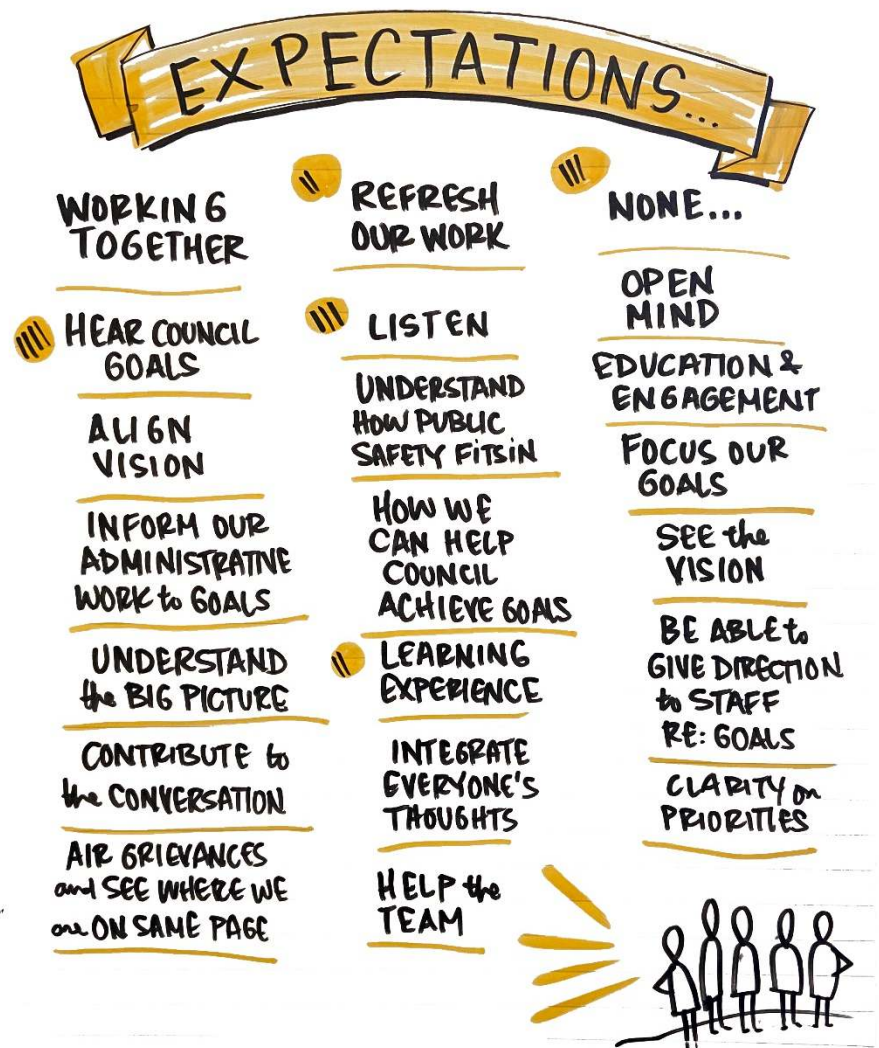 EXPECTATIONS...
WORKING
TOGETHER
HEAR COUNCIL
GOALS
ALIGN
VISION
INFORM OUR
ADMINISTRATIVE
WORK to GOALS
UNDERSTAND
the BIG PICTURE
CONTRIBUTE to
the CONVERSATION
AIR GRIEVANCES
and SEE WHERE WE
are ON SAME PAGE
REFRESH
OUR WORK
LISTEN
UNDERSTAND
HOW PUBLIC
SAFETY FITS IN
HOW WE
CAN HELP
COUNCIL
ACHIEVE GOALS
LEARNING
EXPERIENCE
INTEGRATE
EVERYONE'S
THOUGHTS
HELP the
TEAM
NONE...
OPEN
MIND
EDUCATION &
ENGAGEMENT
FOCUS OUR
GOALS
SEE the
VISION
BE ABLE to
GIVE DIRECTION
to STAFF
RE: GOALS
CLARITY on
PRIORITIES